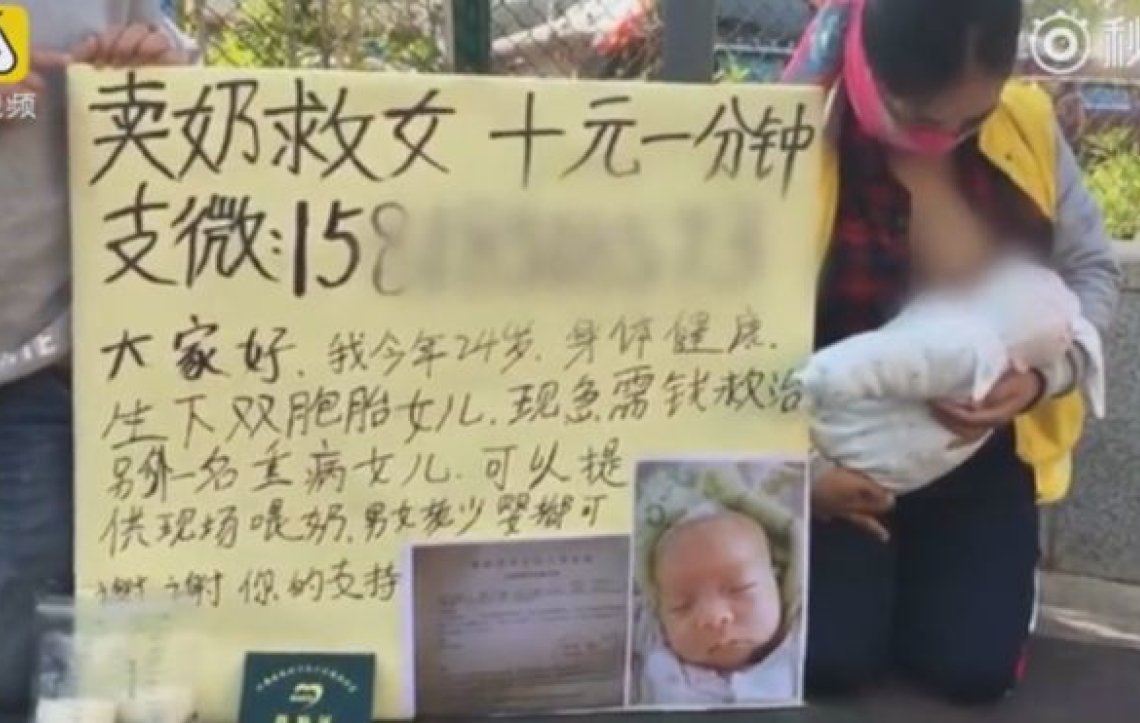 视频
秒
卖奶救女 十元一分钟
支微:15
大家好.我今年24岁.身体健康.
生下双胞胎女儿.现急需钱救治
另外一名重病女儿.可以提
供现场喂奶.男女老少婴都可
谢谢你的支持